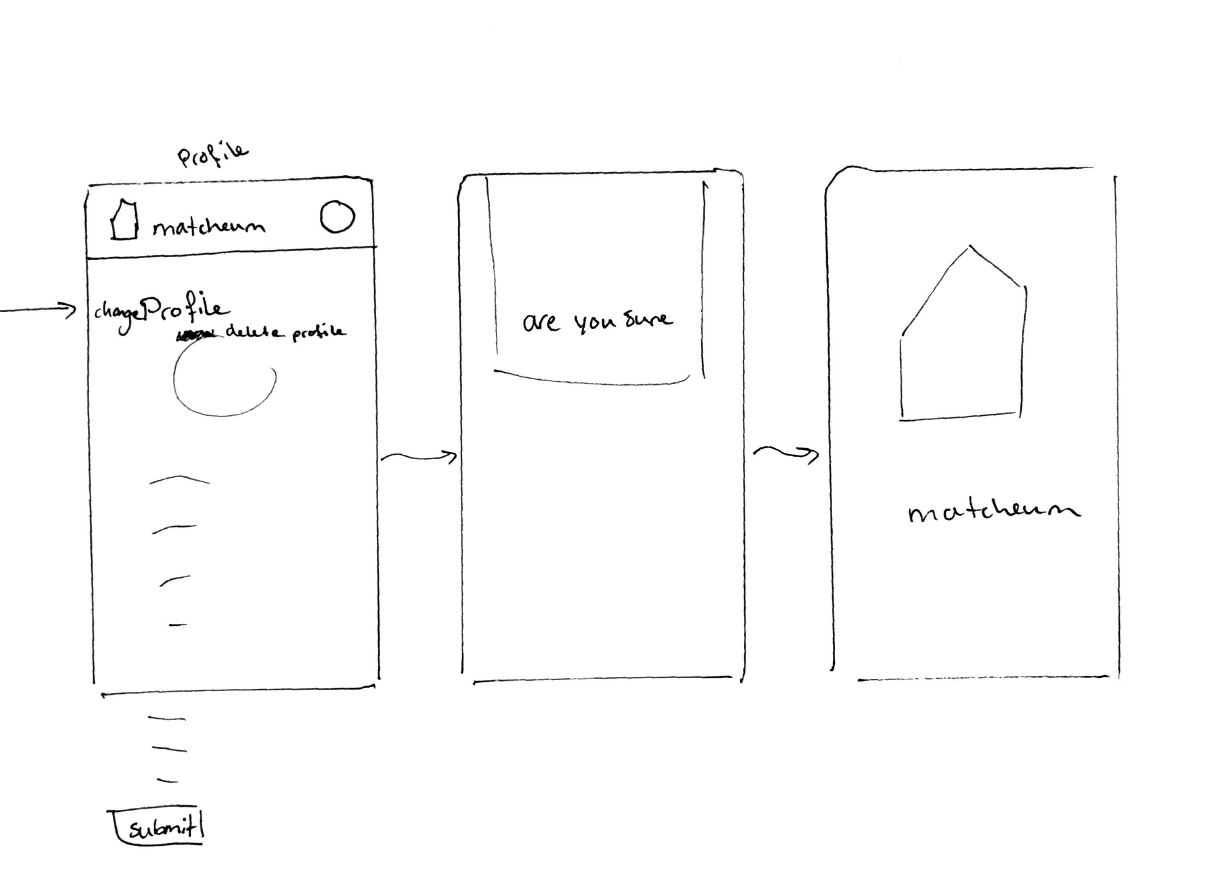 Profile
matcheum
change Profile
delete profile
submit
are you sure
matcheum